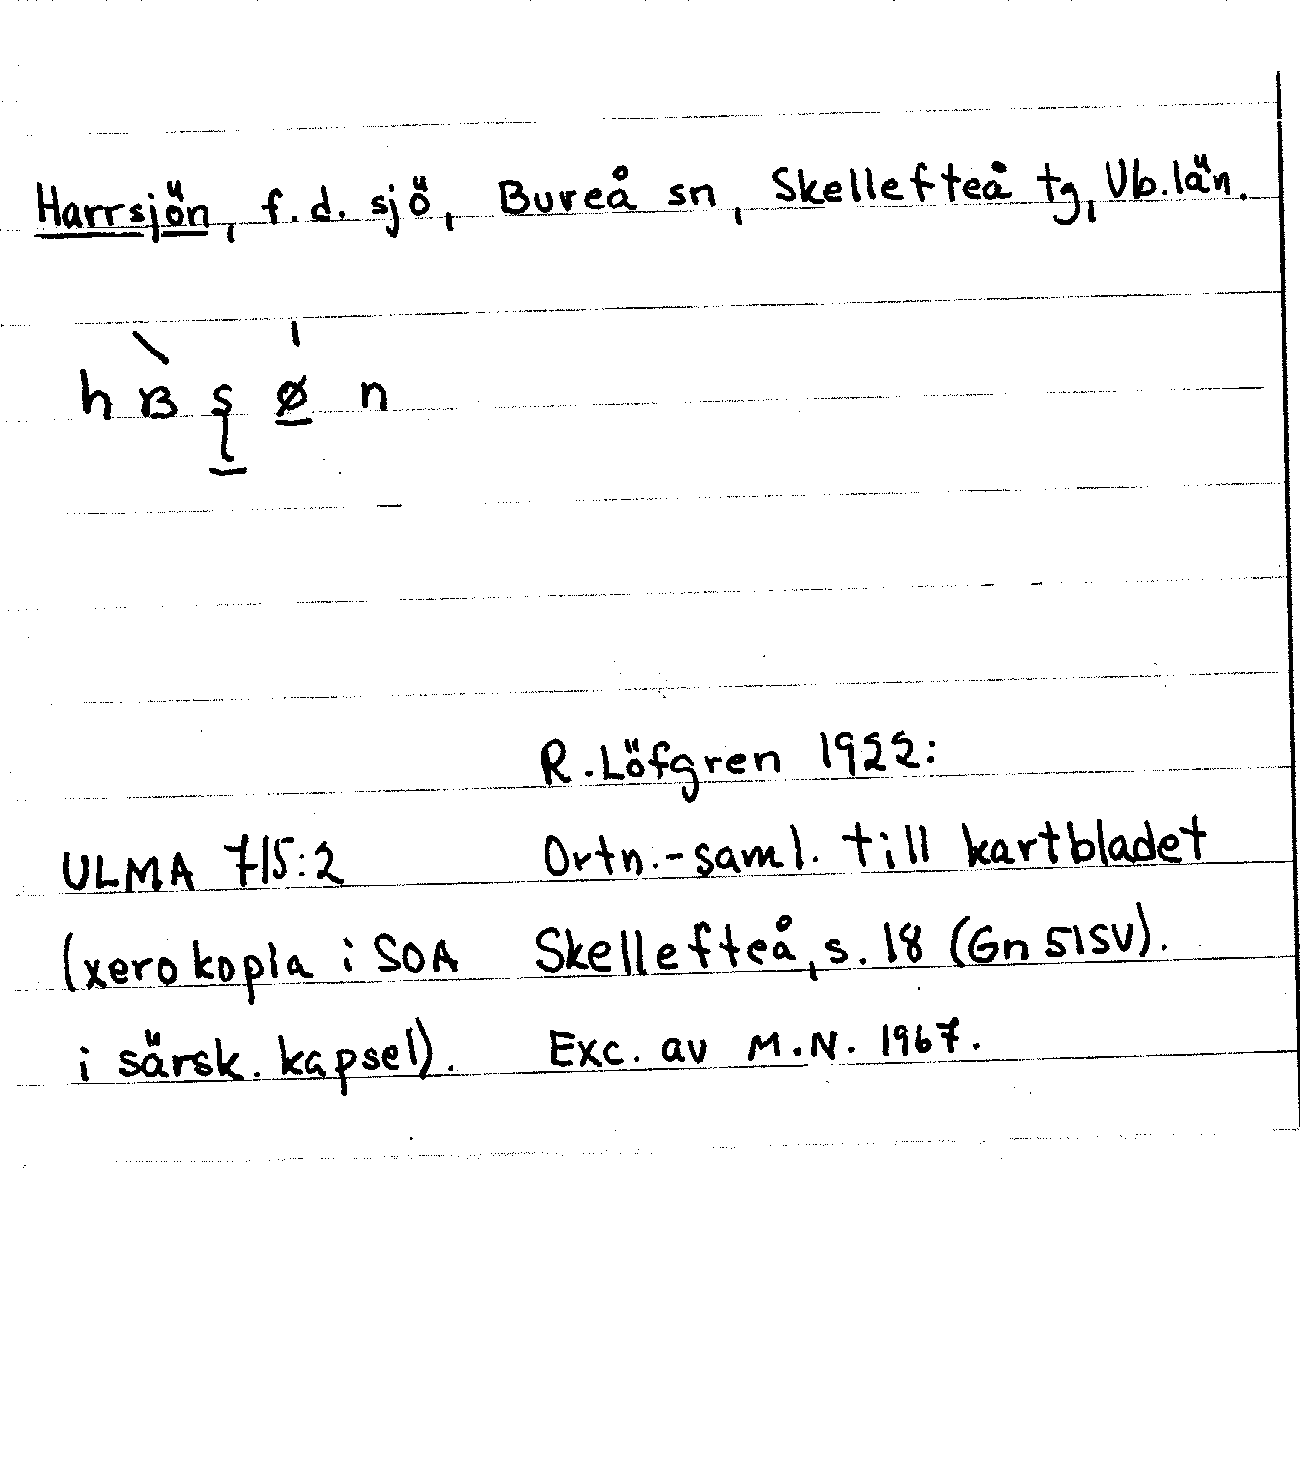 Harrsjön, f.d. sjö, Bureå sn, Skellefteå tg, Vb.län.
R. Löfgren 1922:
ULMA 715:2 Ortn.-saml. till kartbladet
(xerokopia i SOA Skellefteå, s. 18 (Gn 51SV).
i särsk. kapsel). Exc. av M.N. 1967.